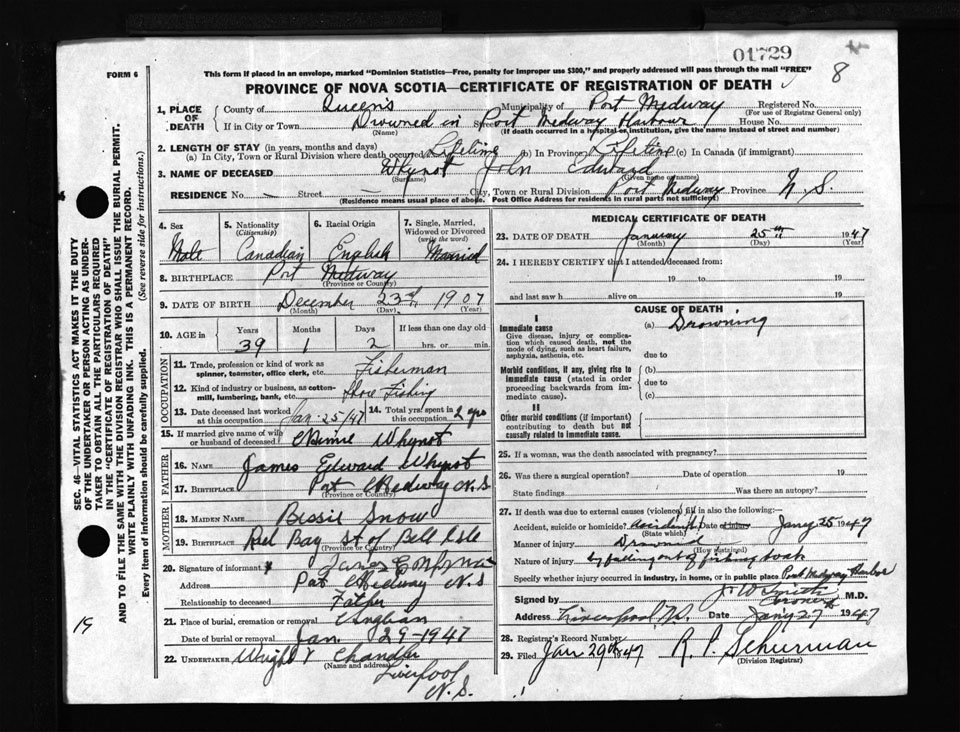 01729
8
FORM 6
This form if placed in an envelope, marked "Dominion Statistics—Free, penalty for improper use $300," and properly addressed will pass through the mail "FREE"
PROVINCE OF NOVA SCOTIA—CERTIFICATE OF REGISTRATION OF DEATH
1. PLACE OF DEATH County of Queens Municipality of Port Medway Registered No.
(For use of Registrar General only)
If in City or Town Drowned in Street Port Medway Harbour House No.
(Name) (If death occurred in a hospital or institution, give the name instead of street and number)
2. LENGTH OF STAY (in years, months and days)
(a) In City, Town or Rural Division where death occurred Lifetime (b) In Province Lifetime (c) In Canada (if immigrant)
3. NAME OF DECEASED Whynot John Edward
(Surname) (Given name or names)
RESIDENCE No. — Street — City, Town or Rural Division Port Medway Province N.S.
(Residence means usual place of abode. Post Office Address for residents in rural parts not sufficient)
4. Sex Male
5. Nationality (Citizenship) Canadian
6. Racial Origin English
7. Single, Married, Widowed or Divorced (write the word) Married
8. BIRTHPLACE Port Medway
(Province or Country)
9. DATE OF BIRTH December 23rd 1907
(Month) (Day) (Year)
10. AGE in Years Months Days If less than one day old
39 1 2 hrs. or min.
OCCUPATION
11. Trade, profession or kind of work as spinner, teamster, office clerk, etc. Fisherman
12. Kind of industry or business, as cotton-mill, lumbering, bank, etc. Shore Fishing
13. Date deceased last worked at this occupation Jan. 25/47
14. Total yrs. spent in this occupation 2 yrs
15. If married give name of wife or husband of deceased Whynot
FATHER
16. NAME James Edward Whynot
17. BIRTHPLACE Port Medway N.S
(Province or Country)
MOTHER
18. MAIDEN NAME Bessie Snow
19. BIRTHPLACE Bay St of Bell Isle
(Province or Country)
20. Signature of informant James E Whynot
Address Port Medway N.S
Relationship to deceased Father
21. Place of burial, cremation or removal Anglican
Date of burial or removal Jan. 29-1947
22. UNDERTAKER Wright & Chandler
(Name and address) Liverpool
N.S.
MEDICAL CERTIFICATE OF DEATH
23. DATE OF DEATH January 25th 1947
(Month) (Day) (Year)
24. I HEREBY CERTIFY that I attended deceased from:
19 to 19
and last saw h alive on 19
CAUSE OF DEATH
I
Immediate cause (a) Drowning
Give disease, injury or complication which caused death, not the mode of dying, such as heart failure, asphyxia, asthenia, etc.
due to
Morbid conditions, if any, giving rise to immediate cause (stated in order proceeding backwards from immediate cause).
(b)
due to
(c)
II
Other morbid conditions (if important) contributing to death but not causally related to immediate cause.
25. If a woman, was the death associated with pregnancy?
26. Was there a surgical operation? Date of operation 19
State findings Was there an autopsy?
27. If death was due to external causes (violence) fill in also the following:—
Accident, suicide or homicide? Accident Date Jany 25 1947
(State which)
Manner of injury Drowned
(How sustained)
Nature of injury by falling out of fishing boat
Specify whether injury occurred in industry, in home, or in public place Port Medway Harbor
Signed by J W Smith M.D.
Coroner
Address Liverpool N.S. Date Jany 27 1947
28. Registrar's Record Number
29. Filed Jan 29th 1947 R. P. Schurman
(Division Registrar)
SEC. 46—VITAL STATISTICS ACT MAKES IT THE DUTY
OF THE UNDERTAKER OR PERSON ACTING AS UNDER-
TAKER TO OBTAIN ALL THE PARTICULARS REQUIRED
IN THE "CERTIFICATE OF REGISTRATION OF DEATH"
AND TO FILE THE SAME WITH THE DIVISION REGISTRAR WHO SHALL ISSUE THE BURIAL PERMIT.
WRITE PLAINLY WITH UNFADING INK. THIS IS A PERMANENT RECORD.
Every item of information should be carefully supplied. (See reverse side for instructions.)
19